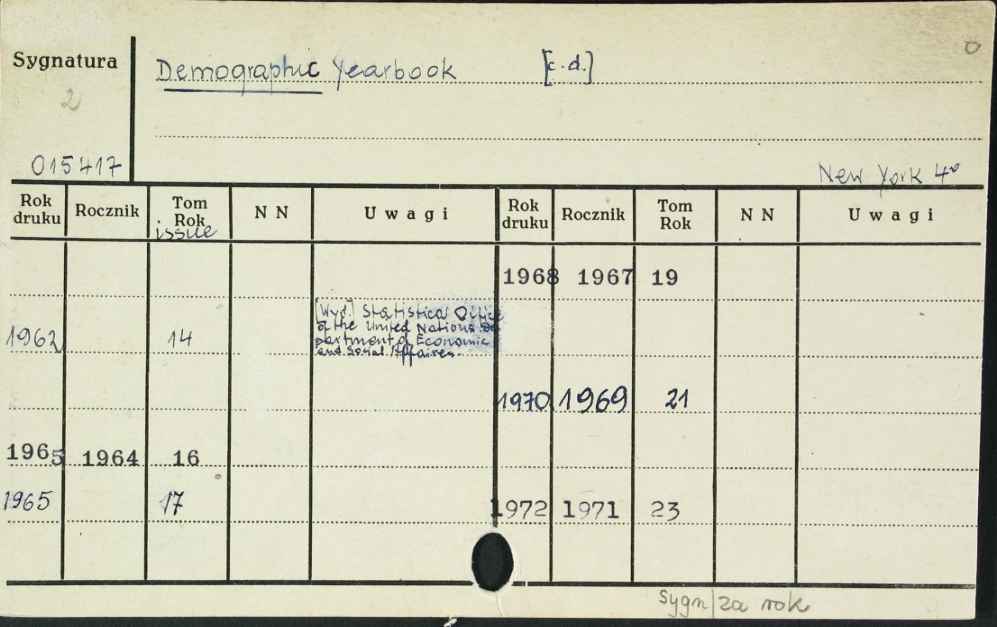 Sygnatura
2
015417
Demographic Yearbook [c.d.]
0
New York 4°
Rok druku Rocznik Tom Rok issue N N Uwagi Rok druku Rocznik Tom Rok N N Uwagi
1968 1967 19
1962 14 [Wyd.] Statistical Office
of the United Nations De
partment of Economic
and Social Affaires.
1970 1969 21
1965 1964 16
1965 17
1972 1971 23
Sygn/za rok